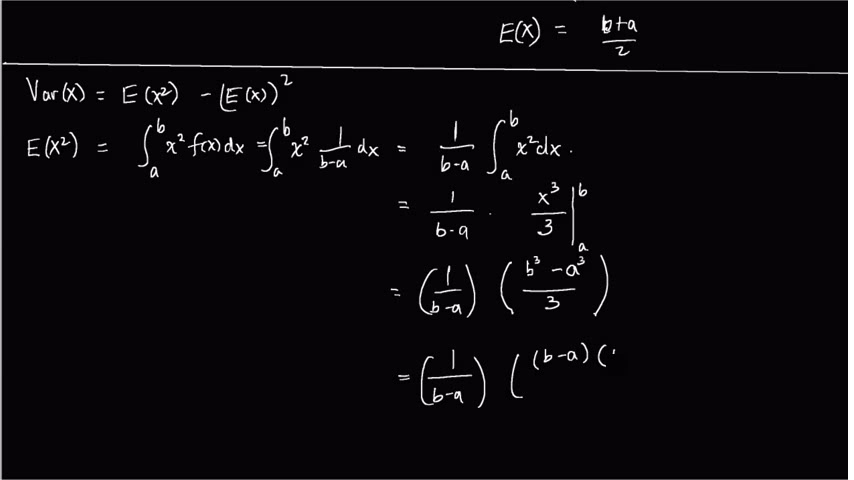 E(X) = (b+a)/2
Var(x) = E(x²) - (E(x))²
E(X²) = ∫ₐᵇ x² f(x) dx = ∫ₐᵇ x² 1/(b-a) dx = 1/(b-a) ∫ₐᵇ x² dx.
= 1/(b-a) · x³/3 |ₐᵇ
= (1/(b-a)) ((b³ - a³)/3)
= (1/(b-a)) ( (b-a) (